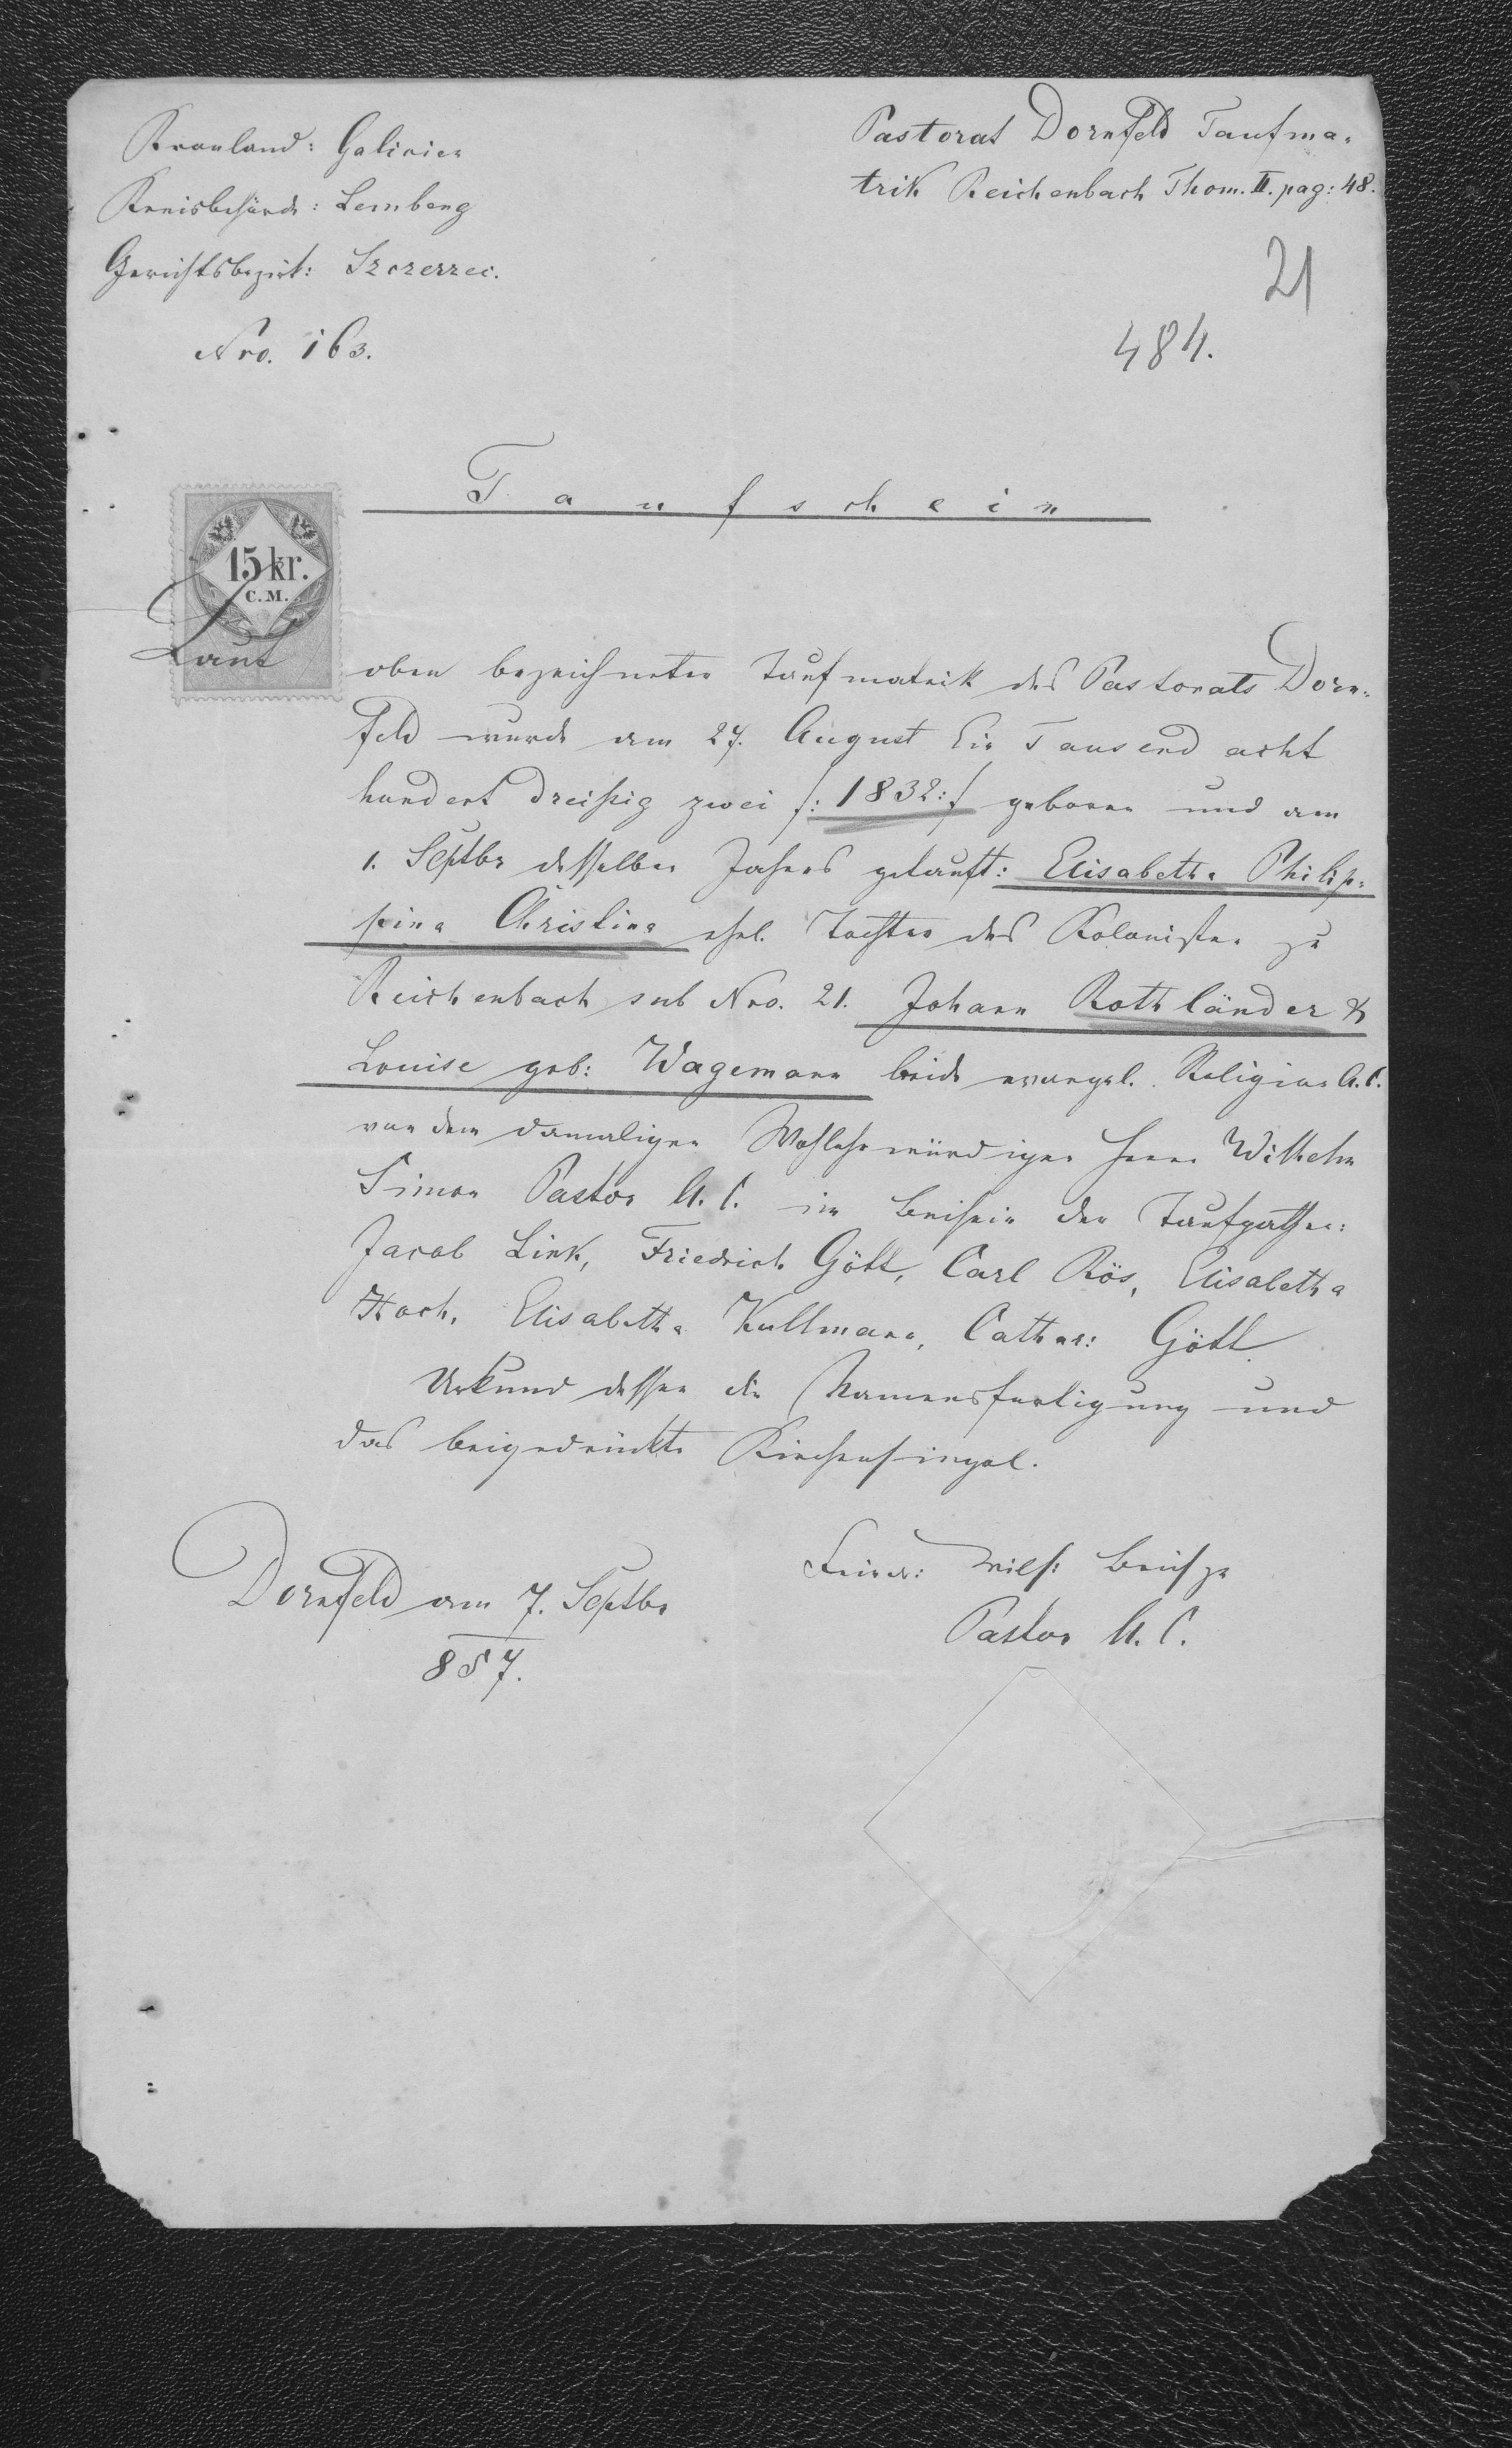 Kronland: Galizien
Kreisbehörde: Lemberg
Gerichtsbezirk: Szczerzec.
Nro. 163.
Pastorat Dornfeld Taufma-
trik Reichenbach Thom. II. pag: 48.
21
484.
Taufschein
15 kr.
C.M.
Laut oben bezeichneter Taufmatrik des Pastorats Dorn-
feld wurde am 27. August Ein Tausend acht
hundert dreißig zwei /: 1832:/ geboren und am
1. Septbr desselben Jahres getauft: Elisabetha Philip-
pina Christina ehel. Tochter des Kolonisten zu
Reichenbach sub Nro. 21. Johann Rothländer &
Louise geb: Wagemann beide evangel. Religion A.C.
von dem damaligen Wohlehrwürdigen Herrn Wilhelm
Simon Pastor A.C. im Beisein der Taufpathen:
Jacob Link, Friedrich Gött, Carl Rös, Elisabetha
Hoch, Elisabetha Kullmann, Cathar: Gött
Urkund dessen die Namensfertigung und
das beigedrückte Kirchensingel.
Dornfeld am 7. Septbr
857.
Friedr: Wilh:
Pastor A.C.